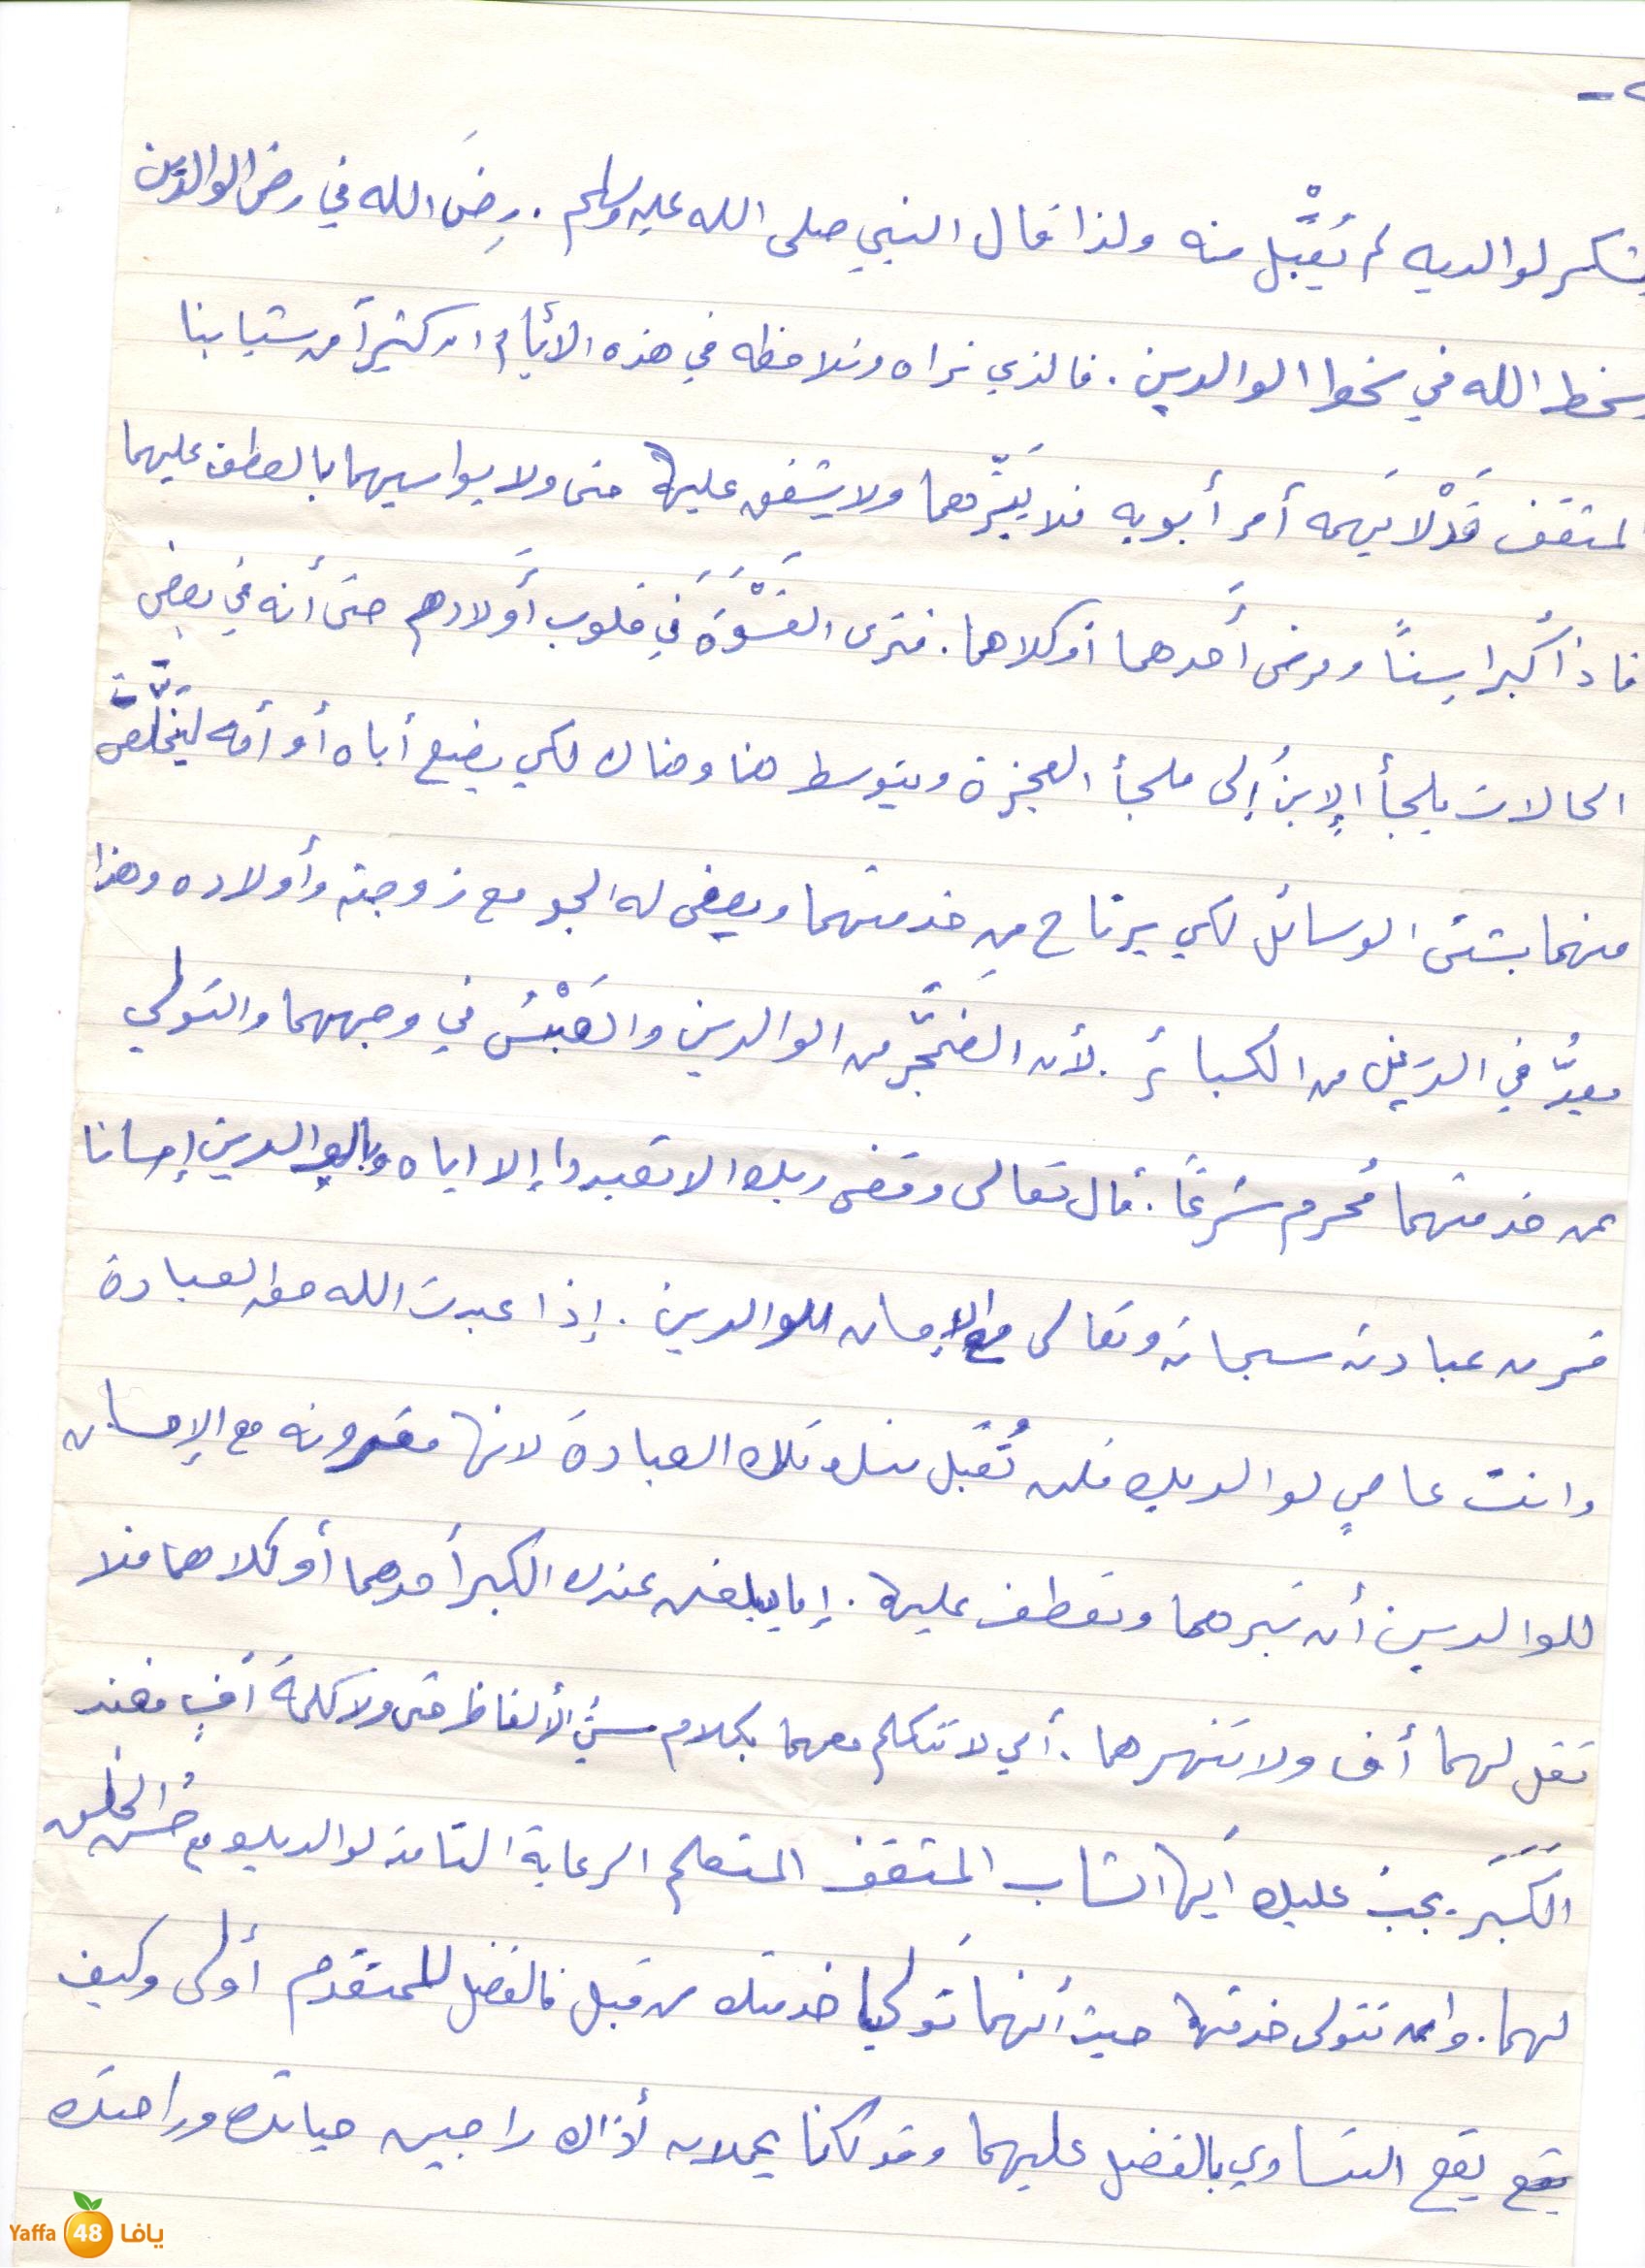 ٢-
يشكر لوالديه لم يُقْبَل منه ولذا قال النبي صلى الله عليه وسلم . رِضَى الله في رضى الوالدين
وسخط الله في سخط الوالدين . فالذي نراه ونلاحظه في هذه الأيام ان كثيراً من شبابنا
المثقف قَدْ لا يَهمه أمر أبويه فلا يَبَرّهما ولا يشفق عليهما حتى ولا يواسيهما بالعطف عليهما
فاذا كُبرا سِناً ومرض أَحدهما أو كلاهما . فترى القَسْوَةَ في قلوب أَولادهم حتى أنه في بعض
الحالات يلجأ الإِبنُ إلى ملجأ العجزة ويتوسط هنا وهناك لكي يضع أباه أو أمه ليتخلَّص
منهما بشتى الوسائل لكي يرتاح مِن خدمتهما ويصفى له الجو مع زوجته وأولاده وهذا
يعدُّ في الدين من الكبائر . لأن الضَّجَّر من الوالدين والعَبْسُ في وجههما والتولي
عن خدمتهما مُحرم شرعاً . قال تعالى وقضى ربك الا تعبدوا إلا اياه وبالوالدين إحسانا
قرن عبادته سبحانه وتعالى مع الإحسان للوالدين . إذا عبدت الله حق العبادة
وانت عاصٍ لوالديك فلن تُقْبَل منك تلك العبادة لانها مقرونه مع الإحسان
للوالدين أن تبرهما وتعطف عليهما . إما يبلغن عندك الكبر أحدهما أو كلاهما فلا
تقل لهما أف ولا تنهرهما . أي لا تتكلم معهما بكلام سيّئ الألفاظ حتى ولا كلمة أفٍ فعند
الكَبَرَ . يجب عليك أَيها الشاب المثقف المتعلم الرعاية التامة لوالديك مع حُسن الخلق
لهما . وان تتولى خدمتهما حيث أنهما تَولَّيا خدمتك من قبل فالفضل للمتقدم أولى وكيف
يقع يقع التساوي بالفضل عليهما وقد كانا يحملان أذاك راجين حياتك وراحتك
Yaffa 48 يافا